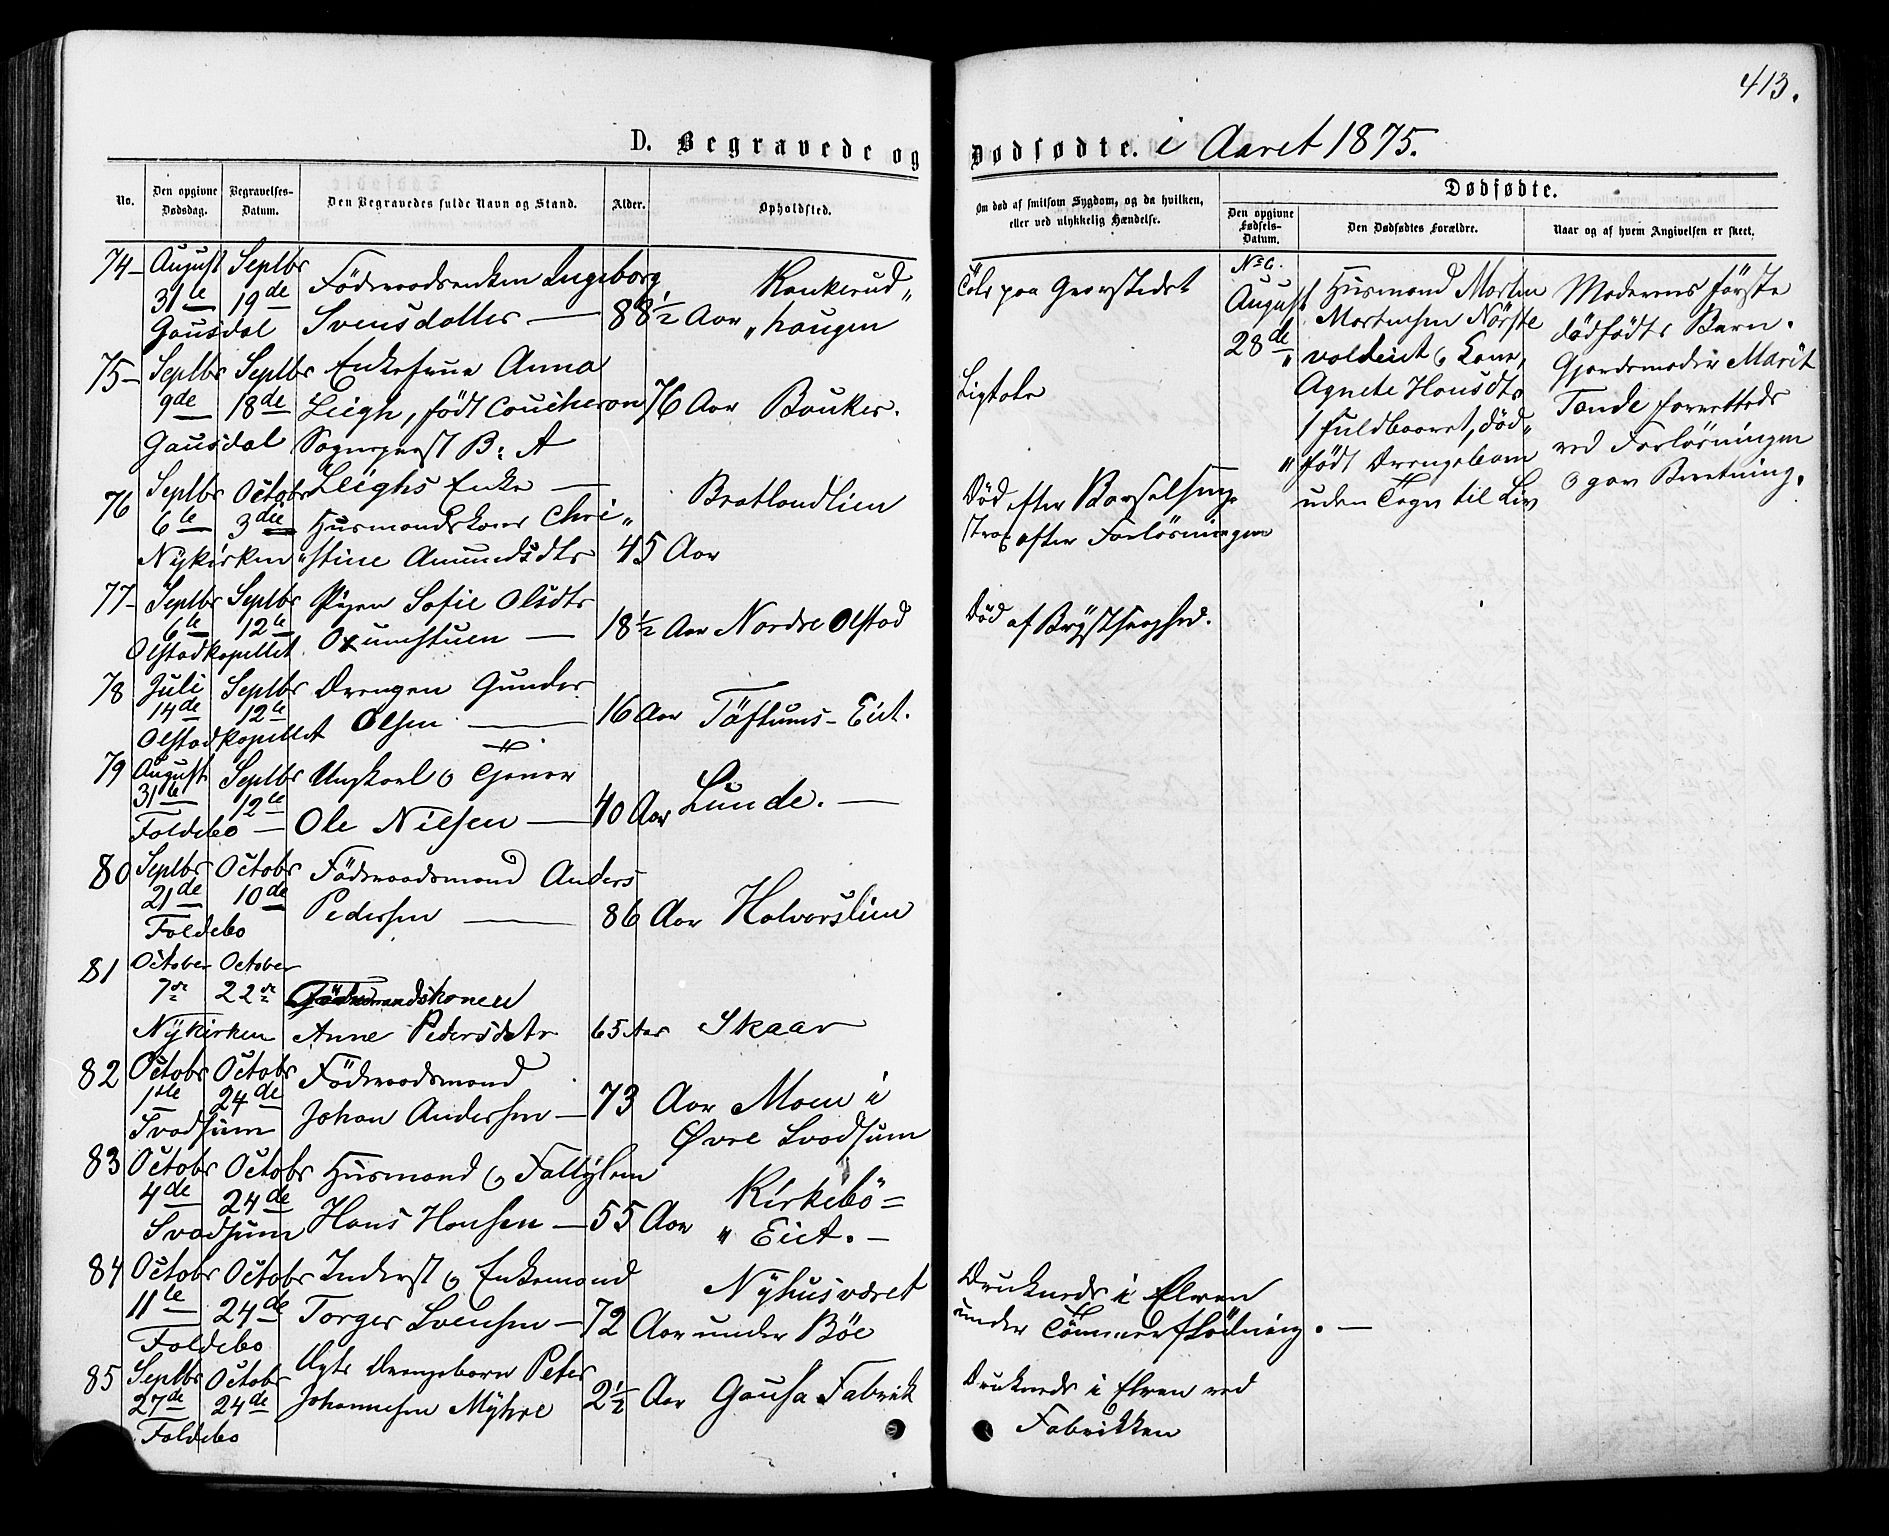 413.
D. Begravede og Dødfødte. i Aaret 1875.
No.
Den opgivne Dødsdag.
Begravelses-Datum.
Den Begravedes fulde Navn og Stand.
Alder.
Opholdsted.
Om død af smitsom Sygdom, og da hvilken, eller ved ulykkelig Hændelse.
Dødfødte.
Den opgivne Fødsels-Datum.
Den Dødfødtes Forældre.
Naar og af hvem Angivelsen er skeet.
74 – August Septbr Föderaadsenken Ingeborg
31te 19de Svensdatter — 88½ Aar Kankerud„
Gausdal „haugen
75 – Septbr Septbr Enkefrue Anna
9de 18de Leigh, født Coucheron 76 Aar Bauker.
Gausdal Sogneprest B: A
Leighs Enke —
76 Septbr Octobr Husmandskone Chri„
6te 3die „stine Amundsdtr 45 Aar Bratlandlien
Nykirken
77 – Septbr Septbr Pigen Sofie Olsdtr
6te 12te umstuen — 18½ Aar Nordre Olstad
Olstadkapellet
78 Juli Septbr Drengen Gunder
14de 12te Olsen — 16 Aar Töftums-Eiet.
Olstadkapellet
79 August Septbr Ungkarl o Tjener
31te 12te Ole Nilsen — 40 Aar Lunde. —
Foldebo —
80 Septbr Octobr Föderaadsmand Anders
21de 10de Pedersen — 86 Aar Halvorslien
Foldebo
81 October October
7de 22de mandskonen
Nykirken Anne Pedersdatr 65 Aar Skaar
82 Octobr Octobr Föderaadsmand
1ste 24de Johan Andersen — 73 Aar Moen i
Svadsum Øvre Svadsum
83 Octobr Octobr Husmand o Fattiglem
4de 24de Hans Hansen — 55 Aar Kirkebö=
Svadsum „ Eiet. –
84 Octobr Octobr Inderst o Enkemand Nyhusværet
11te 24de Torger Svensen — 72 Aar under Böe
Foldebo
85 Septbr Octobr Ægte Drengebarn Peter
27de 24de Johannesen Myhre 2½ Aar Gausa Fabrik
Foldebo
Tolv paa Gravstedet
Ligtale
Død efter Barselseng
strax efter Forløsningen
Død af Brystsyghed.
Druknede i Elven
under Tömmerflödning. —
Druknede i Elven ved
Fabrikken
No 6.
August
28de
Husmand Morten
Mortensen Nörste
voldeiet o Kone,
Agnete Hansdtr
1 fuldbaaret, död„
„födt Drengebarn
uden Tegn til Liv
Moderens første
dödfödte Barn.
Gjordemoder Marit
Tande forrettede
ved Forløsningen
o gav Beretning.